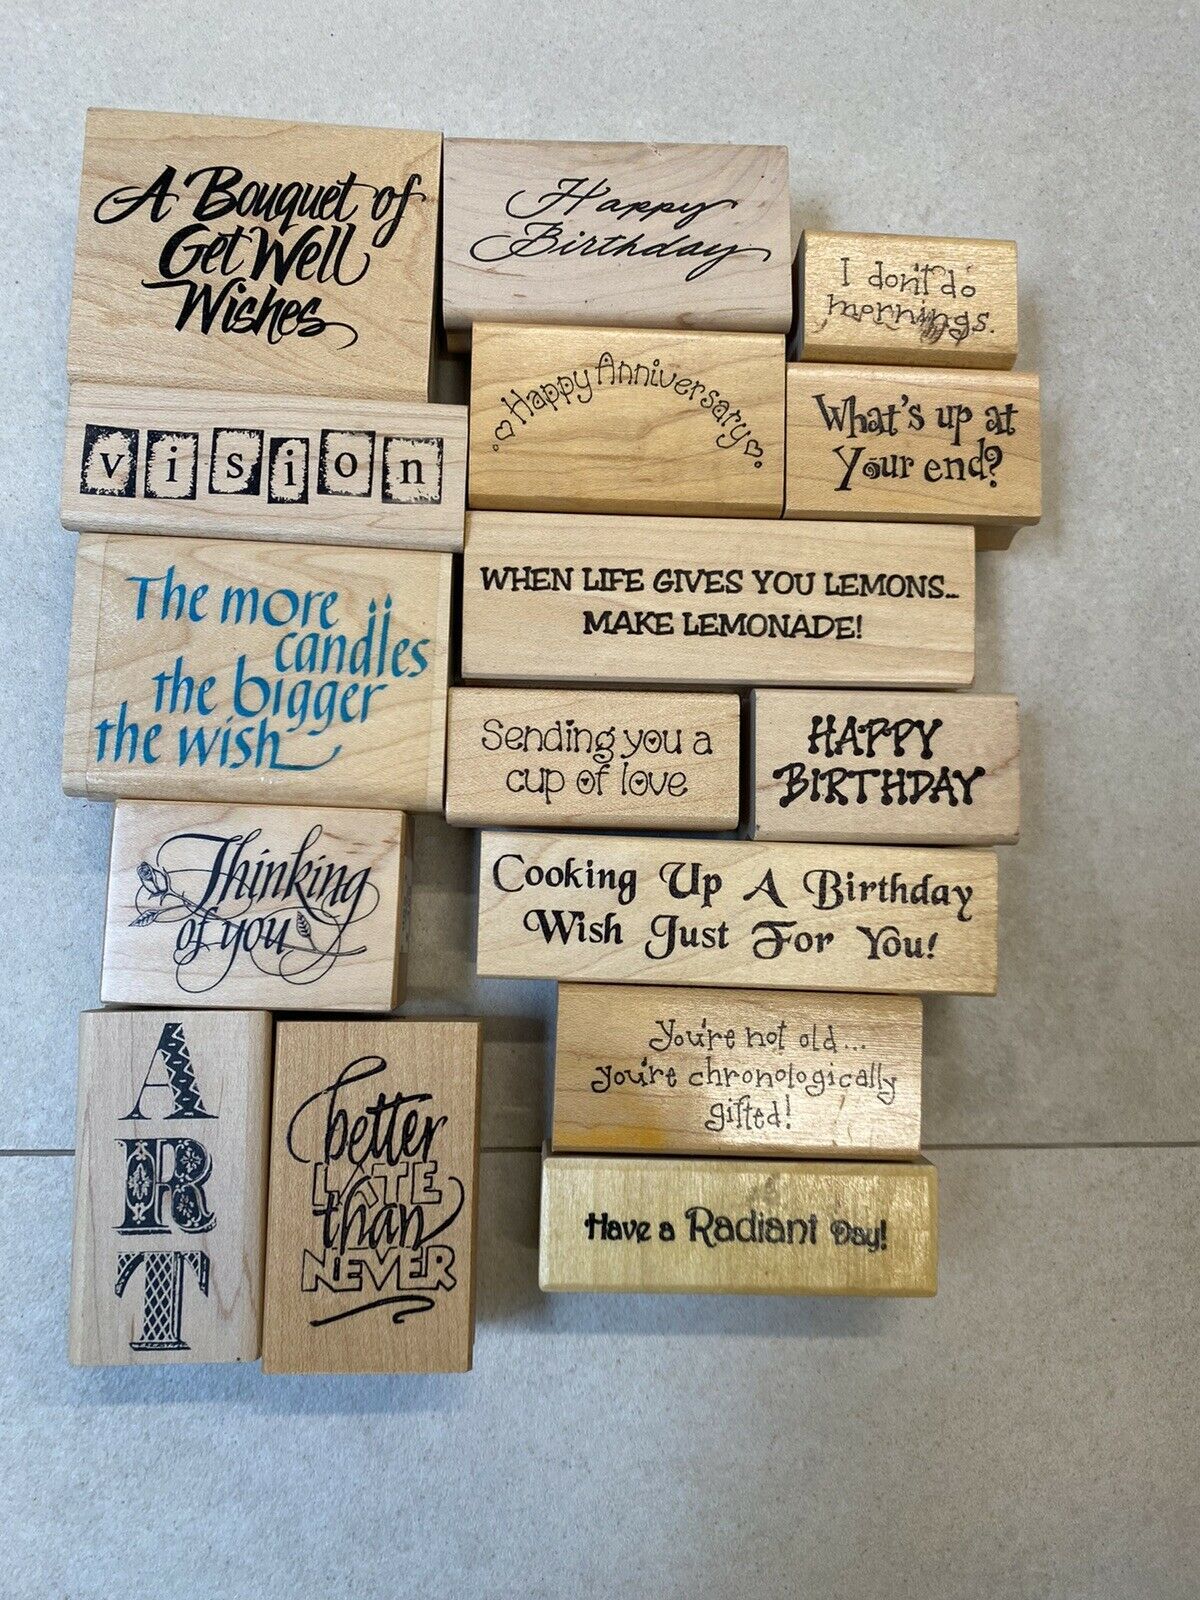 A Bouquet of
Get Well
Wishes
Happy
Birthday
I don't do
mornings.
Happy Anniversary
What's up at
Your end?
vision
WHEN LIFE GIVES YOU LEMONS...
MAKE LEMONADE!
The more
candles
the bigger
the wish
Sending you a
cup of love
HAPPY
BIRTHDAY
Thinking
of you
Cooking Up A Birthday
Wish Just For You!
You're not old...
you're chronologically
gifted!
A
R
T
better
LATE
than
NEVER
Have a Radiant Day!